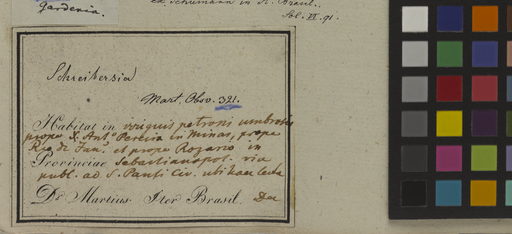 gardenia.
ex Schumann in Fl. Brasil.
Sbl. VI. 91.
Schreibersia
Mart. Obs. 321.
Habitat in virguis petronis umbrosis
prope S. Ant.º Pereira in Minas, prope
Rio de Jan.º et prope Rozario in
Provinciae Sebastianopol. via
publ. ad S. Pauli Civ. ubi haec lecta
Dr. Martius Iter Brasil. Dec